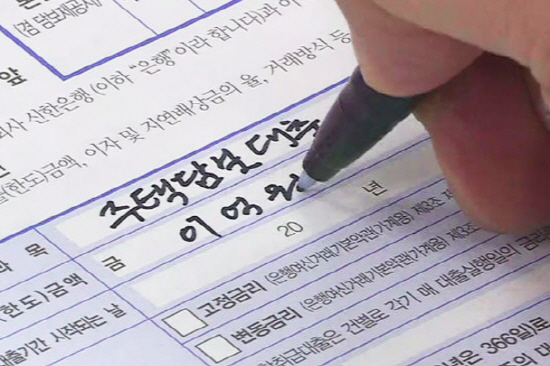 (겸 담보제공자)
앞
신한은행 (이하 "은행"이라 합니다)과 이
(한도)금액, 이자 및 지연배상금의 율, 거래방식 등
과 목 주택담보대출
(한도)금액 금 이억원
대출기간 시작되는 날 20 년
고정금리 (은행여신거래기본약관(가계용) 제3조 제
변동금리 (은행여신거래기본약관(가계용) 제3조
대출은 건별로 각기 매 대출실행일의
은 366일로